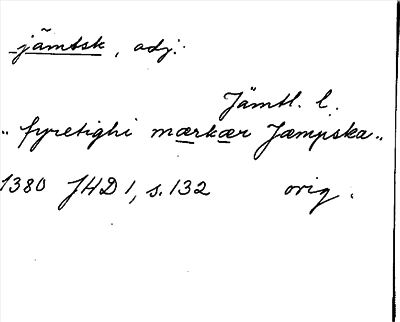 jämtsk, adj.
Jämtl. l.
"fyretighi mærkær Jæmpska"
1380 JHD 1, s. 132 orig.